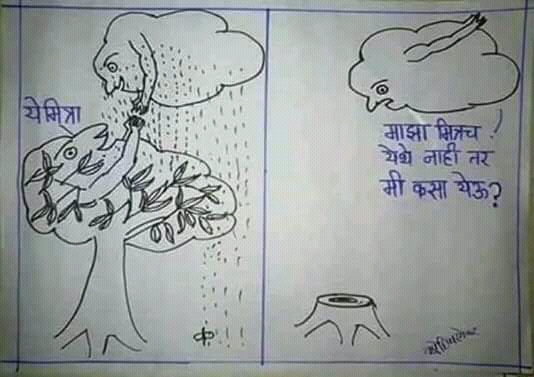 ये मित्रा
माझा मित्रच !
येथे नाही तर
मी कसा येऊ?